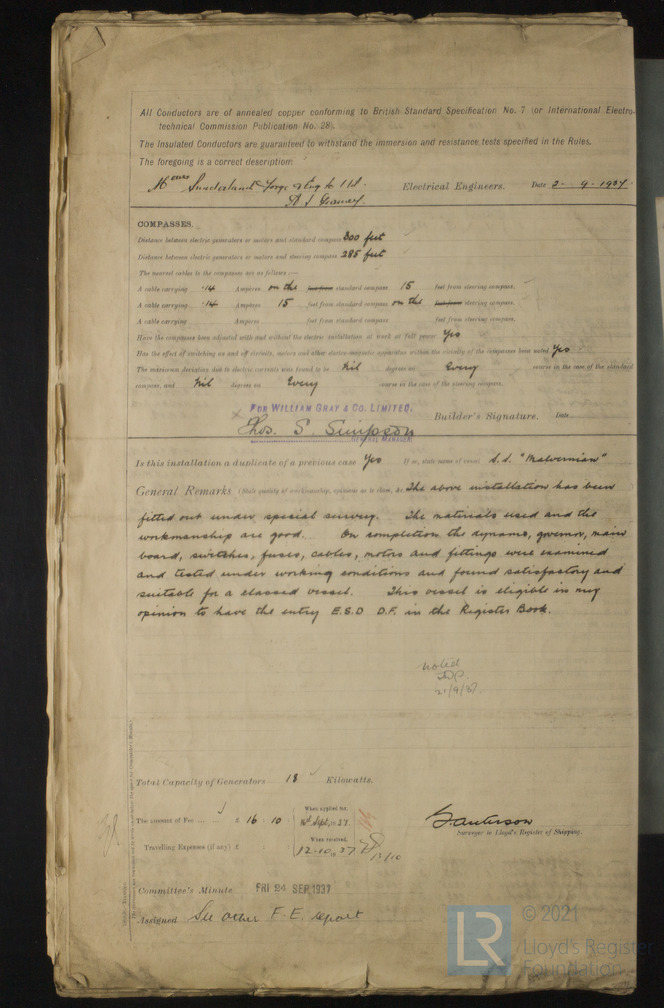 All Conductors are of annealed copper conforming to British Standard Specification No. 7 (or International Electro-
technical Commission Publication No. 28).
The Insulated Conductors are guaranteed to withstand the immersion and resistance tests specified in the Rules.
The foregoing is a correct description:
Sunderland Forge & Eng Co Ltd. Electrical Engineers. Date 2-9-1937.
COMPASSES.
Distance between electric generators or motors and standard compass 300 feet
Distance between electric generators or motors and steering compass 285 feet
The nearest cables to the compasses are as follows:—
A cable carrying .14 Amperes on the standard compass 15 feet from steering compass.
A cable carrying .14 Amperes 15 feet from standard compass on the steering compass.
A cable carrying Amperes feet from standard compass feet from steering compass.
Have the compasses been adjusted with and without the electric installation at work at full power Yes
Has the effect of switching on and off circuits, motors and other electro-magnetic apparatus within the vicinity of the compasses been noted Yes
The maximum deviation due to electric currents was found to be Nil degrees on Every course in the case of the standard
compass, and Nil degrees on Every course in the case of the steering compass.
FOR WILLIAM GRAY & CO. LIMITED.
Thos. S. Simpson Builder's Signature. Date
GENERAL MANAGER
Is this installation a duplicate of a previous case Yes If so, state name of vessel S.S. "Malvernian"
General Remarks The above installation has been
fitted out under special survey. The materials used and the
workmanship are good. On completion the dynamo, governor, main
board, switches, fuses, cables, motors and fittings were examined
and tested under working conditions and found satisfactory and
suitable for a classed vessel. This vessel is eligible in my
opinion to have the entry E.S.D D.F. in the Register Book.
Noted
21/9/37
Total Capacity of Generators 18 Kilowatts.
The amount of Fee £ 16 10 When applied for, 16th Sept. 1937
When received,
Travelling Expenses (if any) £ 12.10.1937 13/10
Surveyor to Lloyd's Register of Shipping.
Committee's Minute FRI 24 SEP 1937
Assigned See other F.E. report
LR
© 2021
Lloyd's Register
Foundation